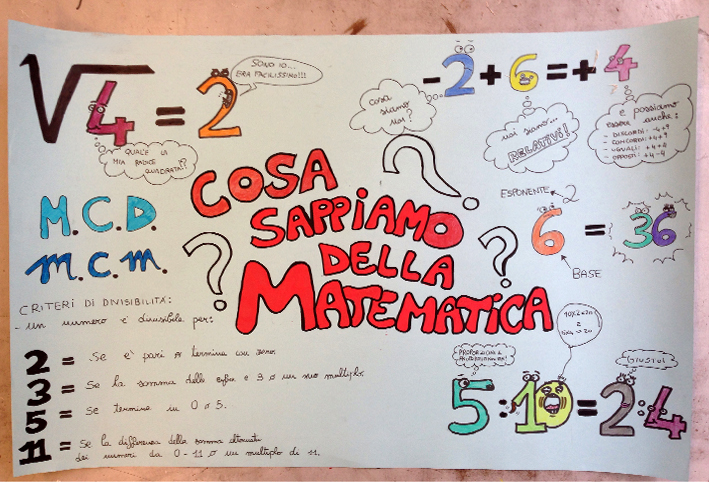 √4 = 2
SONO IO...
ERA FACILISSIMO!!!
QUAL'È LA
MIA RADICE
QUADRATA!?
-2+6=+4
COSA
SIAMO
NOI?
NOI SIAMO...
RELATIVI!
E POSSIAMO
ESSERE ANCHE:
- DISCORDI: -4+9
- CONCORDI: +4+9
- UGUALI: +4+4
- OPPOSTI: +4-4
COSA
SAPPIAMO
DELLA
MATEMATICA
?
?
?
ESPONENTE
2
6 = 36
BASE
M.C.D.
m.c.m.
CRITERI DI DIVISIBILITÀ:
- un numero è divisibile per:
2 = Se è pari o termina con zero.
3 = Se la somma delle cifre è 3 o un suo multiplo.
5 = se termina in 0 o 5.
11 = se la differenza della somma alternata
dei numeri dà 0 - 11 o un multiplo di 11.
PROPORZIONI E
10X2=20
E
5X4=20
GIUSTO!
5:10=2:4